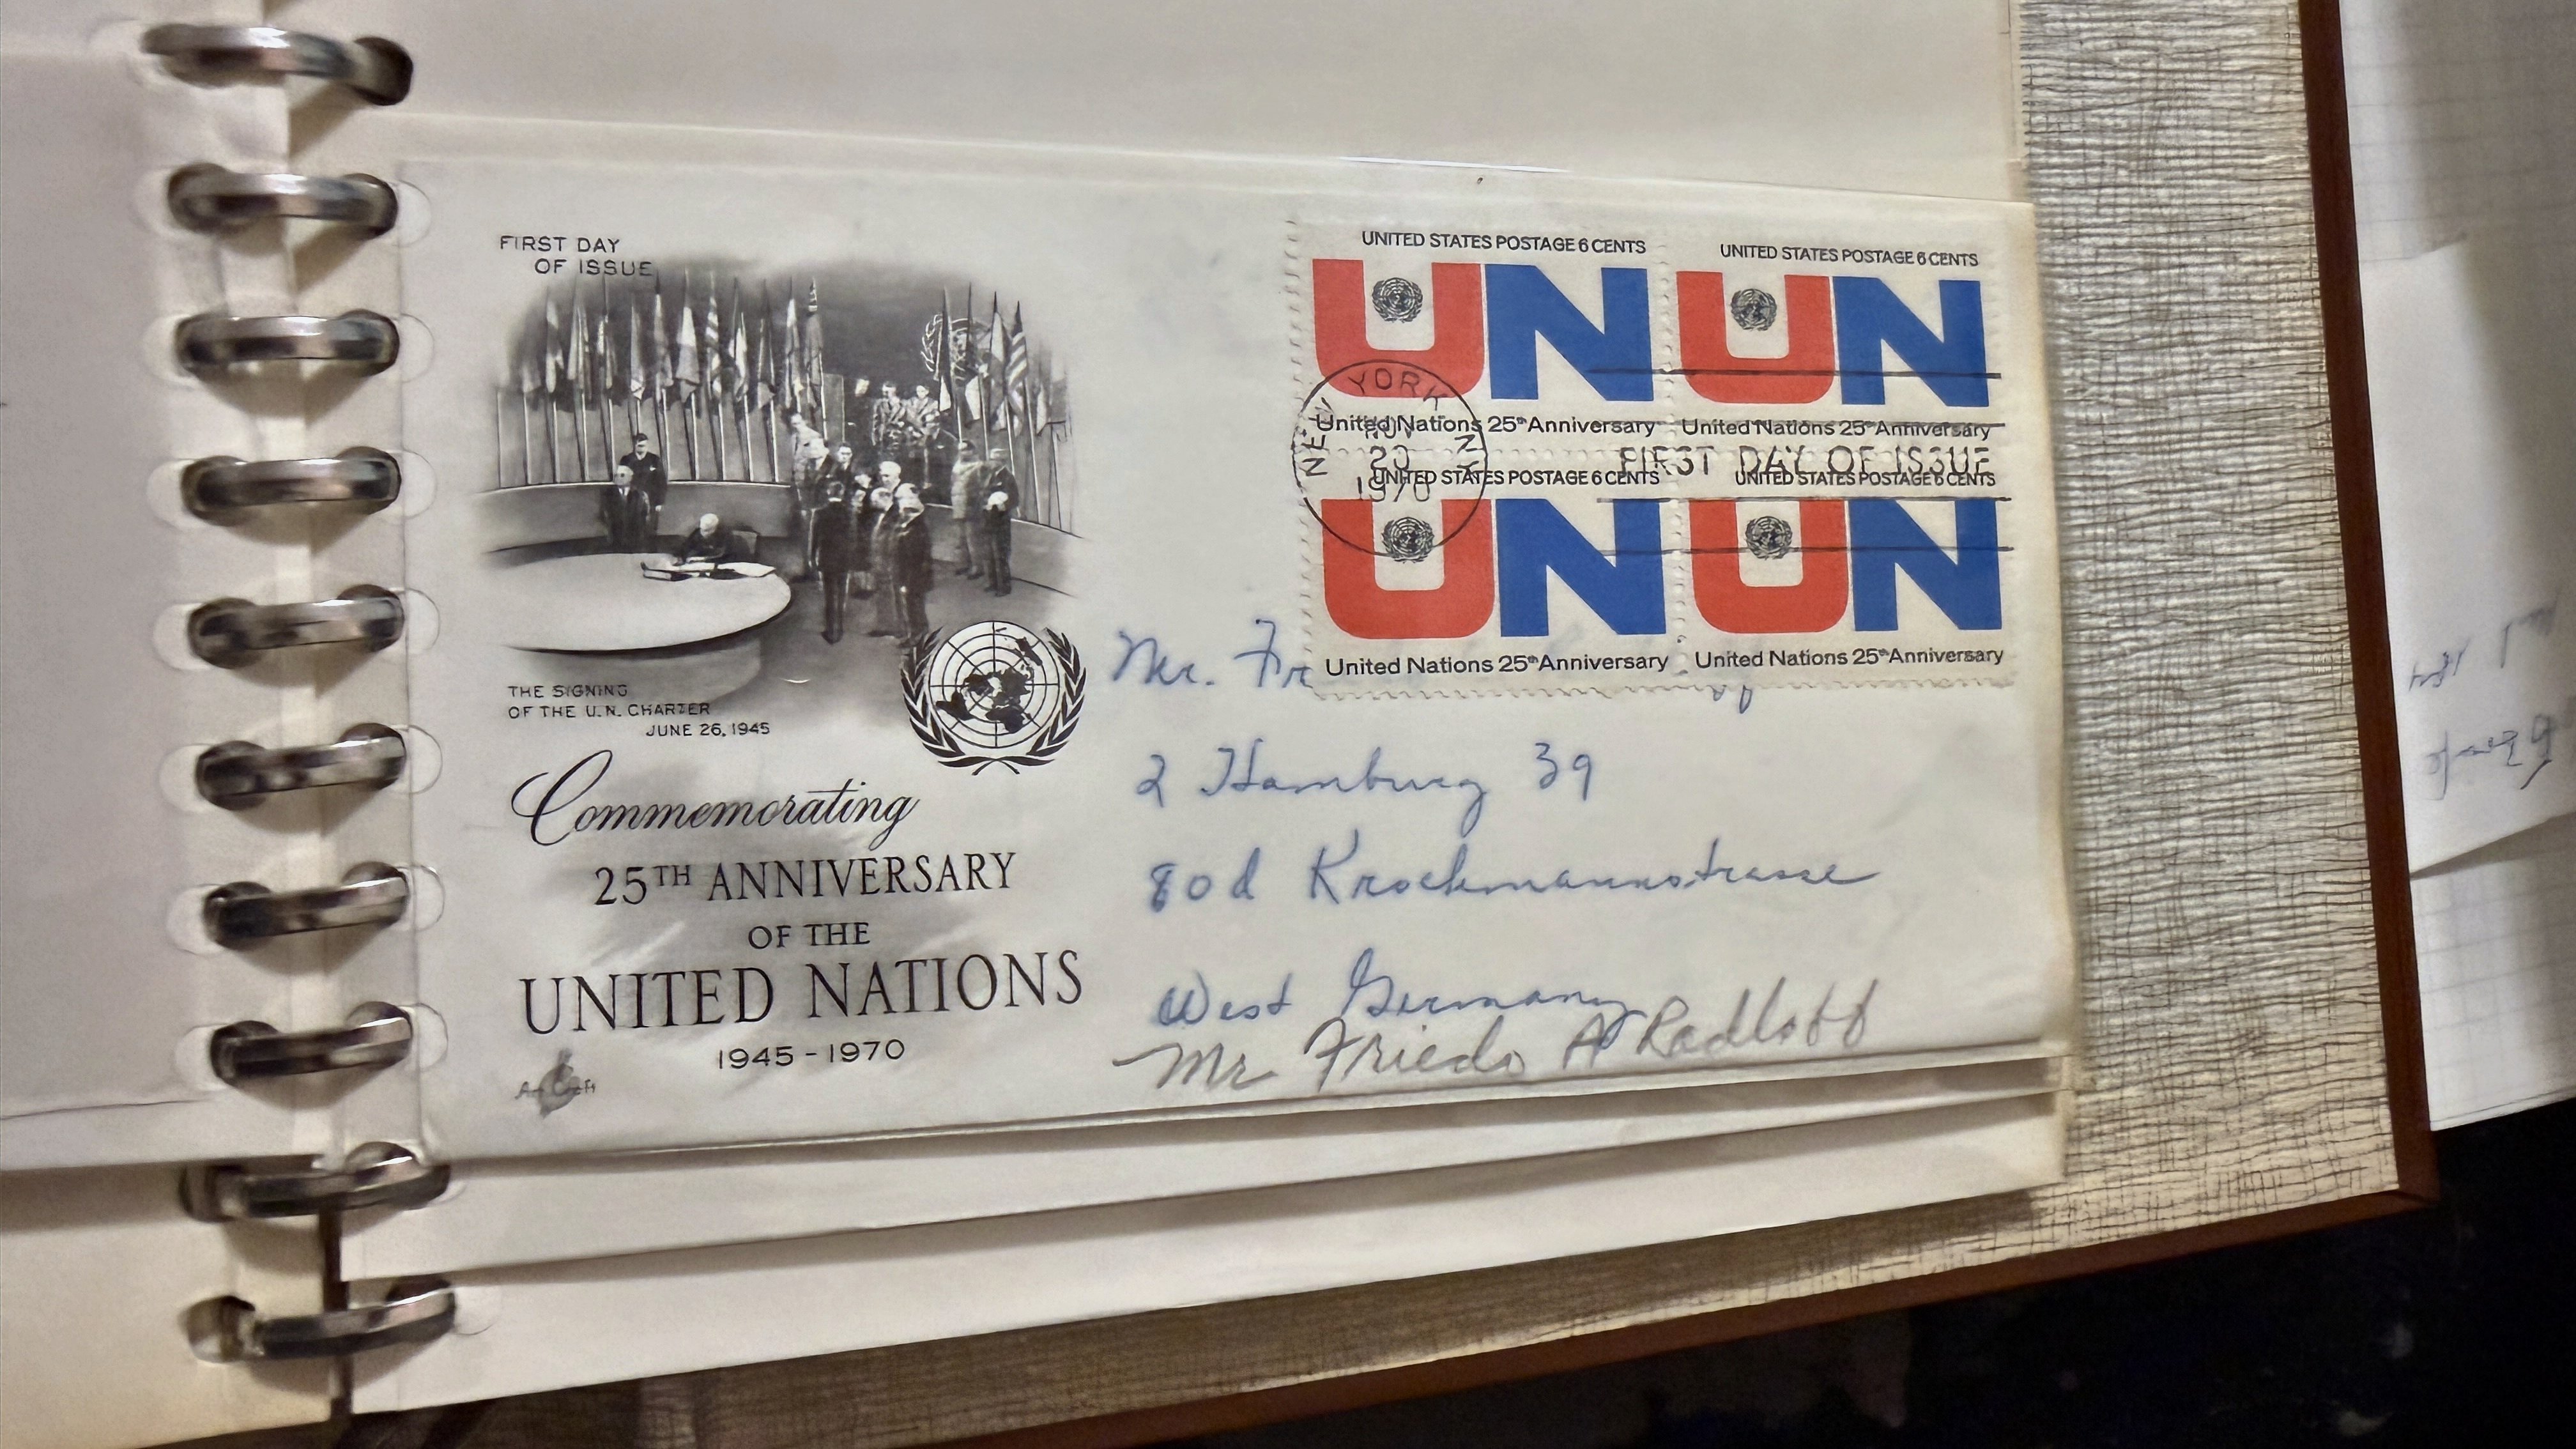 FIRST DAY
OF ISSUE
THE SIGNING
OF THE U.N. CHARTER
JUNE 26, 1945
Commemorating
25TH ANNIVERSARY
OF THE
UNITED NATIONS
1945 - 1970
Art Craft
UNITED STATES POSTAGE 6 CENTS
UN
United Nations 25th Anniversary
UNITED STATES POSTAGE 6 CENTS
UN
United Nations 25th Anniversary
NEW YORK NY
NOV
20
1970
FIRST DAY OF ISSUE
UNITED STATES POSTAGE 6 CENTS
UN
United Nations 25th Anniversary
UNITED STATES POSTAGE 6 CENTS
UN
United Nations 25th Anniversary
Mr. Fr
2 Hamburg 39
80d Krochmannstrasse
West Germany
Mr Friedo A Radloff